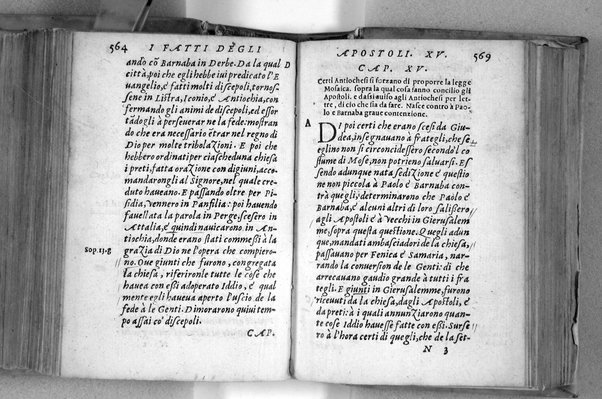 564 I FATTI DEGLI
andò cõ Barnaba in Derbe. Da la qual D
città, poi che egli hebbe iui predicato l'E
uangelio, e' fatti molti discepoli, tornos
sene in Listra, Iconio, e' Antiochia, con
fermando gli animi de discepoli, ed essor
tãdogli à perseuerar ne la fede: mostran
do che era necessario ētrar nel regno di
Dio per molte tribolazioni. E poi che
hebbero ordinati per ciascheduna chiesa
i preti, fatta orazione con digiuni, accō
mandarongli al Signore, nel quale cre
duto haueano. E passando oltre per Pi-
sidia, vennero in Panfilia: poi hauendo
fauellata la parola in Perge, scesero in
Attalia, e' quindi nauicarono in Antio
chia, donde erano stati commessi à la
Sop. 13.g grazia di Dio ne l'opera che compiero-
no. Que giunti che furono, congregata
la chiesa, riferironle tutte le cose che
hauea con essi adoperato Iddio, e' qual
mente egli haueua aperto l'uscio de la
fede à le Genti. Dimorarono quiui tem-
po assai co' discepoli.
CAP.
APOSTOLI. XV. 569
CAP. XV.
Certi Antiochesi si forzano di proporre la legge
Mosaica. sopra la qual cosa fanno concilio gli
Apostoli. e dassi auiso agli Antiochesi per let-
tre, di cio che sia da fare. Nasce contrò à Pao-
lo e Barnaba graue contenzione.
A
DI poi certi che erano scesi da Giu-
dea, insegnauano à frategli, che se
eglino non si circoncidessero secōdo'l co
stume di Mose, non potrieno saluarsi. Es
sendo adunque nata sedizione e' questio
ne non piccola à Paolo e' Barnaba con
trà quegli, determinarono che Paolo e'
Barnaba, e' alcuni altri di loro salissero
agli Apostoli e' à Vecchi in Gierusalem
me, sopra questa questione. Quegli adun
que, mandati ambasciadori de la chiesa,
passauano per Fenica e' Samaria, nar-
rando la conuersion de le Genti: di che
arrecauano gaudio grande à tutti i fra
tegli. E giunti in Gierusalemme, furono
riceuuti da la chiesa, dagli Apostoli, e'
da preti: à i quali annunziarono quan-
te cose Iddio hauesse fatte con essi. Surse
ro à l'hora certi di quegli, che de la set-
N 3